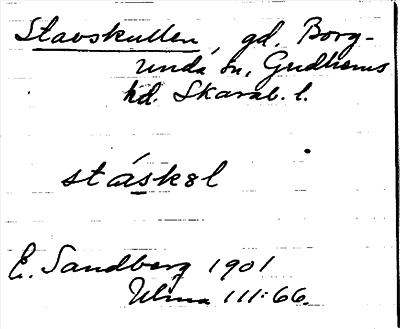 Stavskullen, gd. Borg-
unda sn, Gudhems
hd. Skarab. l.
stáskȣl
E. Sandberg 1901
Ulma 111:66.